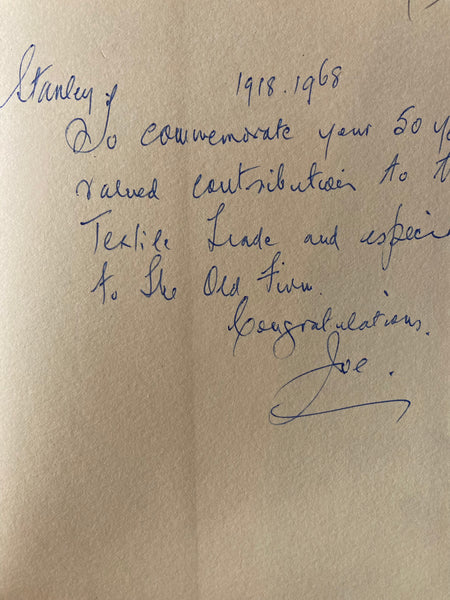 Stanley, 1918.1968
To commemorate your 50 y
valued contribution to t
Textile Trade and especi
to The Old Firm.
Congratulations.
Joe.